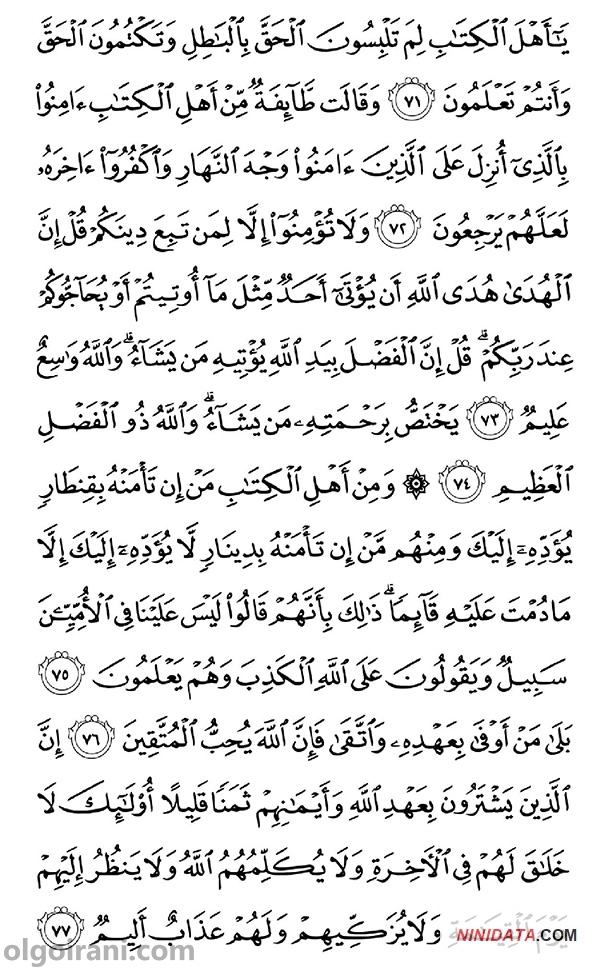 يَٰٓأَهۡلَ ٱلۡكِتَٰبِ لِمَ تَلۡبِسُونَ ٱلۡحَقَّ بِٱلۡبَٰطِلِ وَتَكۡتُمُونَ ٱلۡحَقَّ
وَأَنتُمۡ تَعۡلَمُونَ ٧١ وَقَالَت طَّآئِفَةٞ مِّنۡ أَهۡلِ ٱلۡكِتَٰبِ ءَامِنُواْ
بِٱلَّذِيٓ أُنزِلَ عَلَى ٱلَّذِينَ ءَامَنُواْ وَجۡهَ ٱلنَّهَارِ وَٱكۡفُرُوٓاْ ءَاخِرَهُۥ
لَعَلَّهُمۡ يَرۡجِعُونَ ٧٢ وَلَا تُؤۡمِنُوٓاْ إِلَّا لِمَن تَبِعَ دِينَكُمۡ قُلۡ إِنَّ
ٱلۡهُدَىٰ هُدَى ٱللَّهِ أَن يُؤۡتَىٰٓ أَحَدٞ مِّثۡلَ مَآ أُوتِيتُمۡ أَوۡ يُحَآجُّوكُمۡ
عِندَ رَبِّكُمۡۗ قُلۡ إِنَّ ٱلۡفَضۡلَ بِيَدِ ٱللَّهِ يُؤۡتِيهِ مَن يَشَآءُۗ وَٱللَّهُ وَٰسِعٌ
عَلِيمٞ ٧٣ يَخۡتَصُّ بِرَحۡمَتِهِۦ مَن يَشَآءُۗ وَٱللَّهُ ذُو ٱلۡفَضۡلِ
ٱلۡعَظِيمِ ٧٤ ۞ وَمِنۡ أَهۡلِ ٱلۡكِتَٰبِ مَنۡ إِن تَأۡمَنۡهُ بِقِنطَارٖ
يُؤَدِّهِۦٓ إِلَيۡكَ وَمِنۡهُم مَّنۡ إِن تَأۡمَنۡهُ بِدِينَارٖ لَّا يُؤَدِّهِۦٓ إِلَيۡكَ إِلَّا
مَا دُمۡتَ عَلَيۡهِ قَآئِمٗاۗ ذَٰلِكَ بِأَنَّهُمۡ قَالُواْ لَيۡسَ عَلَيۡنَا فِي ٱلۡأُمِّيِّـۧنَ
سَبِيلٞ وَيَقُولُونَ عَلَى ٱللَّهِ ٱلۡكَذِبَ وَهُمۡ يَعۡلَمُونَ ٧٥
بَلَىٰ مَنۡ أَوۡفَىٰ بِعَهۡدِهِۦ وَٱتَّقَىٰ فَإِنَّ ٱللَّهَ يُحِبُّ ٱلۡمُتَّقِينَ ٧٦ إِنَّ
ٱلَّذِينَ يَشۡتَرُونَ بِعَهۡدِ ٱللَّهِ وَأَيۡمَٰنِهِمۡ ثَمَنٗا قَلِيلًا أُوْلَٰٓئِكَ لَا
خَلَٰقَ لَهُمۡ فِي ٱلۡأٓخِرَةِ وَلَا يُكَلِّمُهُمُ ٱللَّهُ وَلَا يَنظُرُ إِلَيۡهِمۡ
يَوۡمَ ٱلۡقِيَٰمَةِ وَلَا يُزَكِّيهِمۡ وَلَهُمۡ عَذَابٌ أَلِيمٞ ٧٧
NINIDATA.COM
olgoirani.com